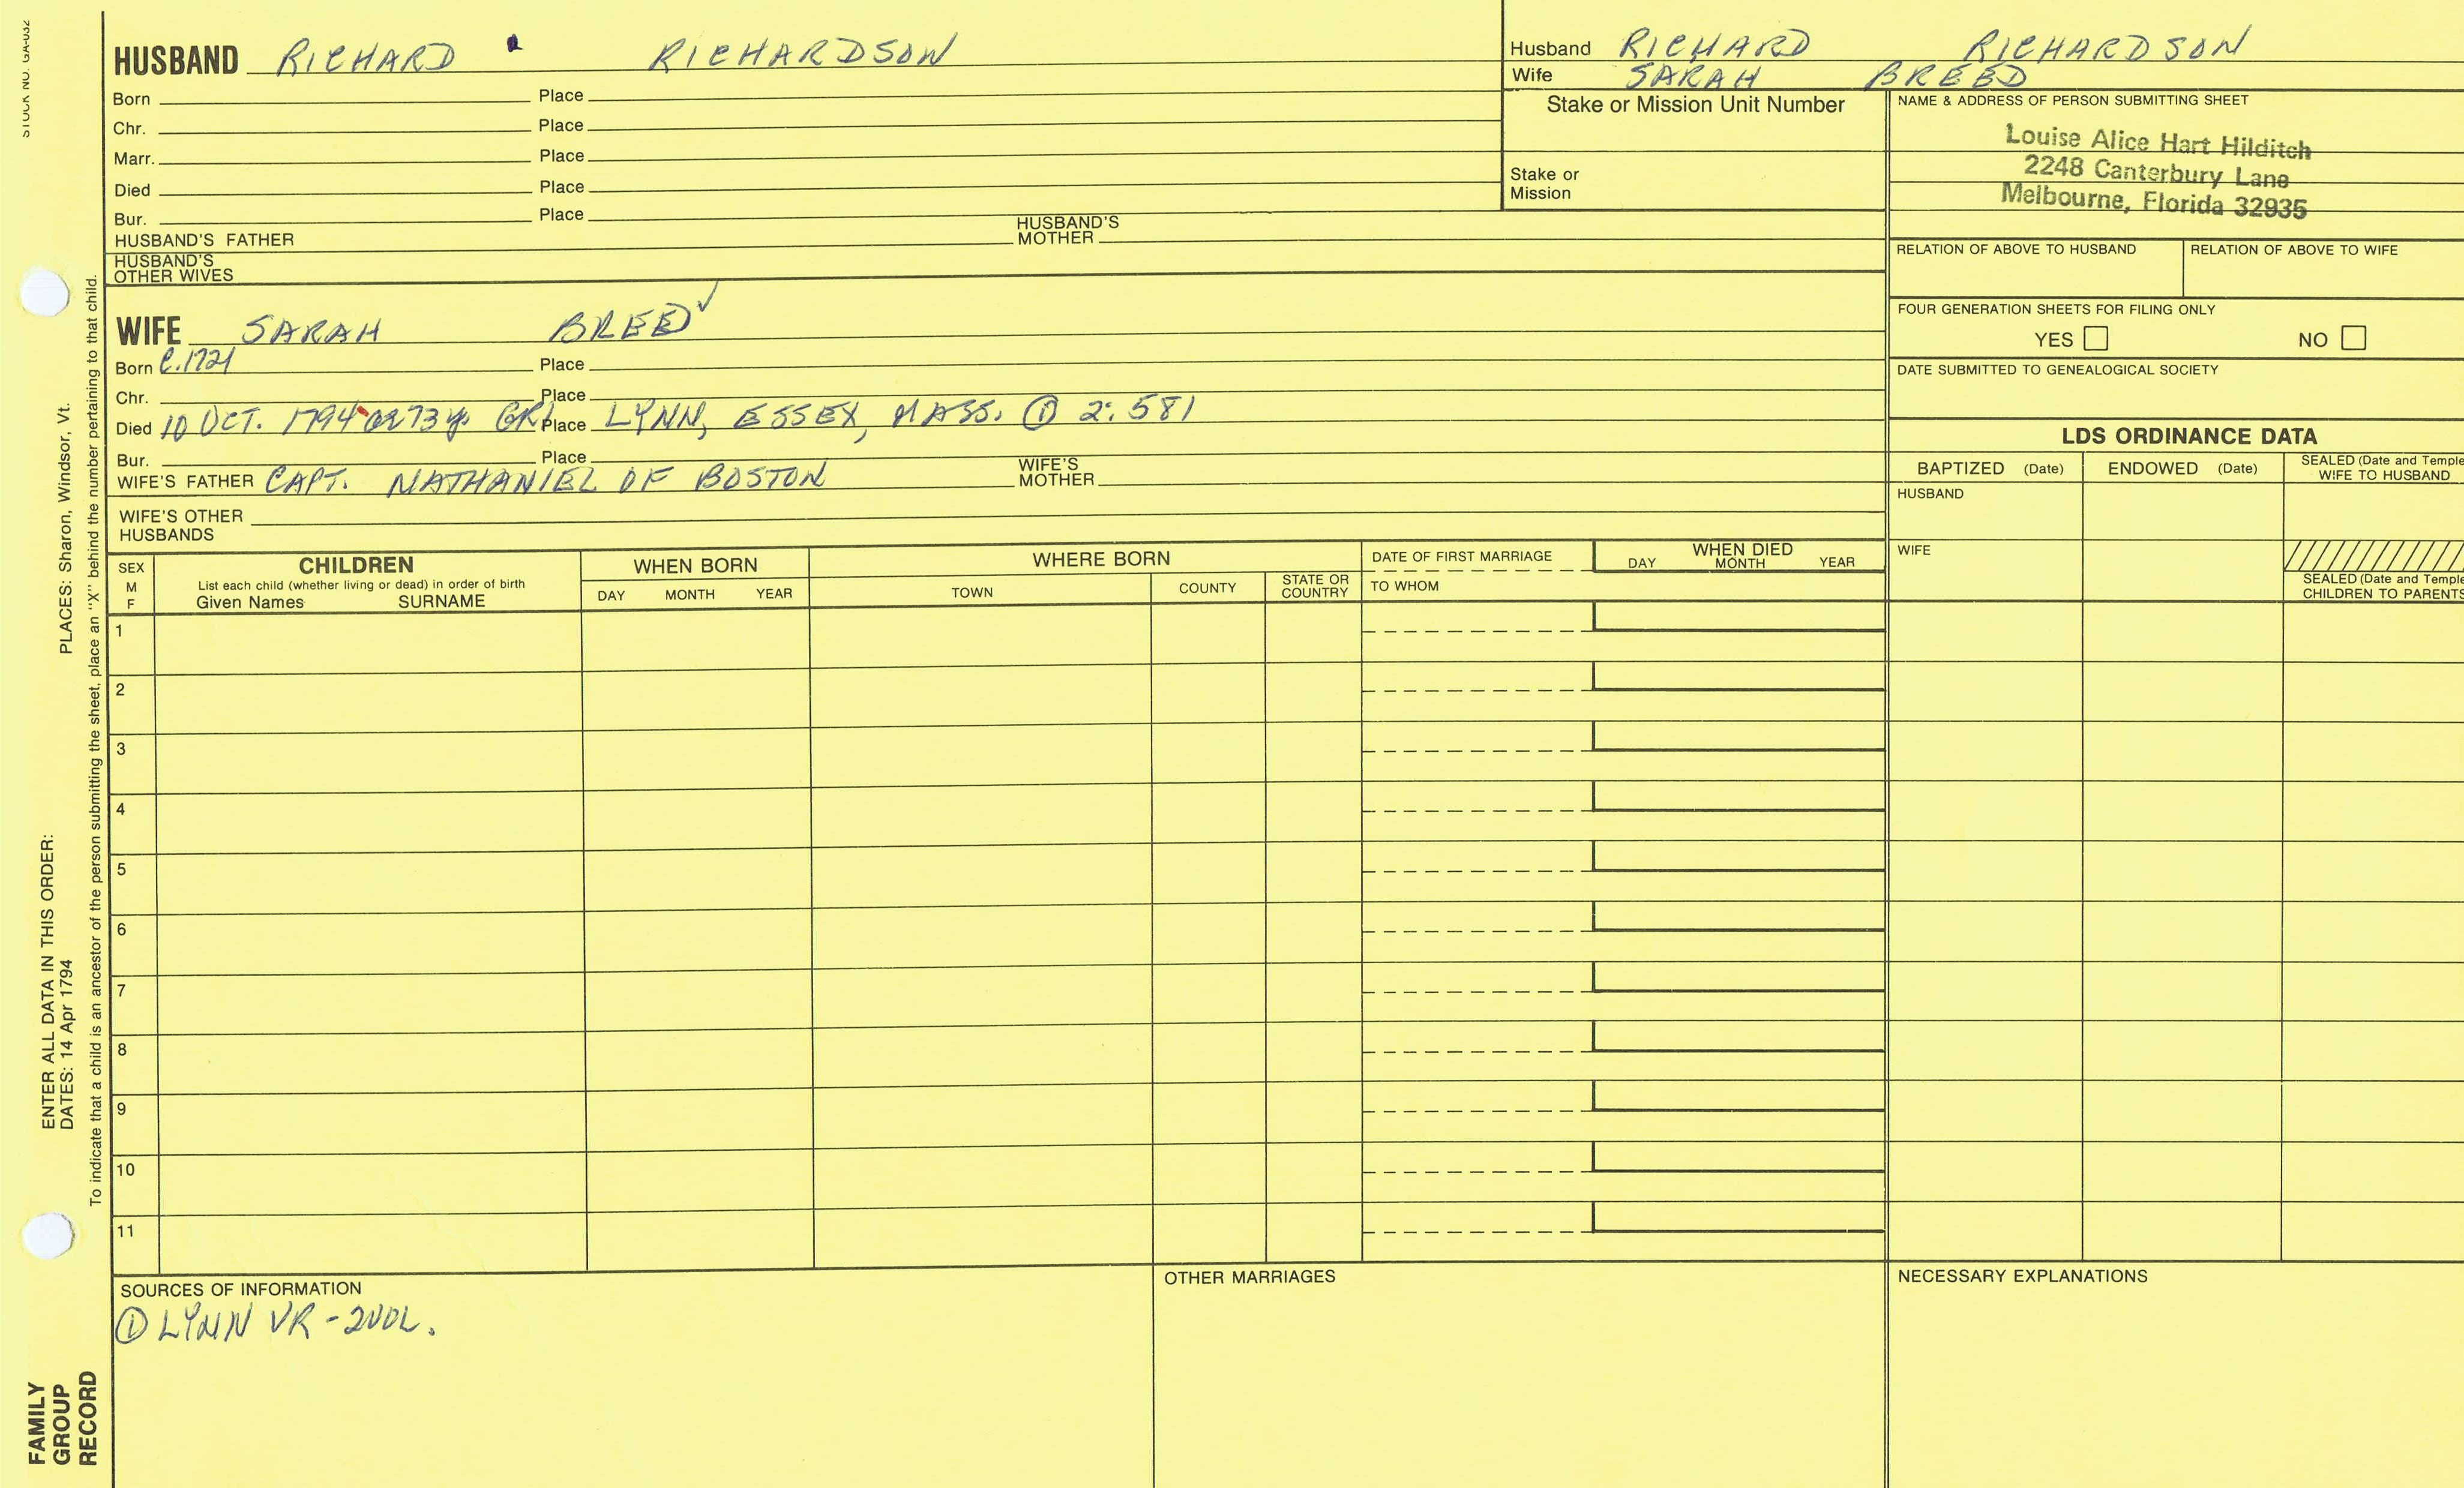 STOCK NO. GA-032
HUSBAND RICHARD RICHARDSON
Born Place
Chr. Place
Marr. Place
Died Place
Bur. Place
HUSBAND'S FATHER HUSBAND'S MOTHER
HUSBAND'S OTHER WIVES
WIFE SARAH BREED ✓
Born C.1721 Place
Chr. Place
Died 10 OCT. 1794 73 y. GR1 Place LYNN, ESSEX, MASS. ① 2:581
Bur. Place
WIFE'S FATHER CAPT. NATHANIEL OF BOSTON WIFE'S MOTHER
WIFE'S OTHER HUSBANDS
Husband RICHARD RICHARDSON
Wife SARAH BREED
Stake or Mission Unit Number
Stake or Mission
NAME & ADDRESS OF PERSON SUBMITTING SHEET
Louise Alice Hart Hilditch
2248 Canterbury Lane
Melbourne, Florida 32935
RELATION OF ABOVE TO HUSBAND RELATION OF ABOVE TO WIFE
FOUR GENERATION SHEETS FOR FILING ONLY
YES NO
DATE SUBMITTED TO GENEALOGICAL SOCIETY
LDS ORDINANCE DATA
BAPTIZED (Date) ENDOWED (Date) SEALED (Date and Temple WIFE TO HUSBAND
HUSBAND
WIFE
SEALED (Date and Temple
CHILDREN TO PARENTS
SEX M F CHILDREN WHEN BORN WHERE BORN DATE OF FIRST MARRIAGE WHEN DIED
List each child (whether living or dead) in order of birth
Given Names SURNAME DAY MONTH YEAR TOWN COUNTY STATE OR COUNTRY TO WHOM DAY MONTH YEAR
1
2
3
4
5
6
7
8
9
10
11
SOURCES OF INFORMATION
① LYNN VR - 2VOL.
OTHER MARRIAGES
NECESSARY EXPLANATIONS
ENTER ALL DATA IN THIS ORDER:
DATES: 14 Apr 1794 PLACES: Sharon, Windsor, Vt.
To indicate that a child is an ancestor of the person submitting the sheet, place an "X" behind the number pertaining to that child.
FAMILY
GROUP
RECORD